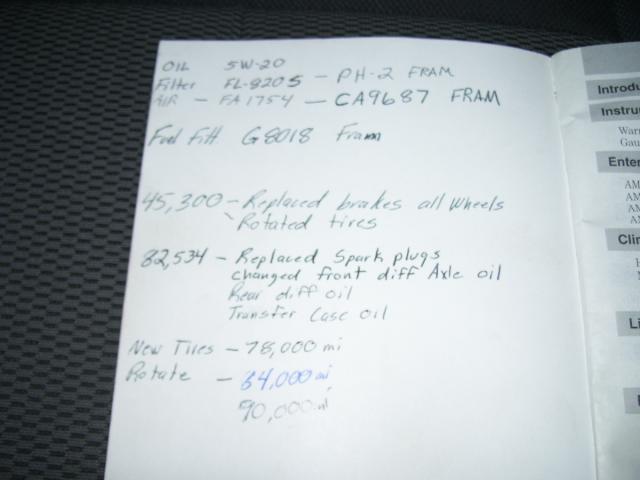 OIL 5W-20
Filter FL-820S - PH-2 FRAM
AIR - FA1754 - CA9687 FRAM
Fuel Filt. G8018 Fram
45,300 - Replaced brakes all wheels
Rotated tires
82,534 - Replaced Spark plugs
changed front diff Axle oil
Rear diff oil
Transfer Case oil
New Tires - 78,000 mi
Rotate - 84,000 mi
90,000 mi
Introdu
Instrur
Warr
Gau
Enter
AM
AM
AM
AM
Clin
Li